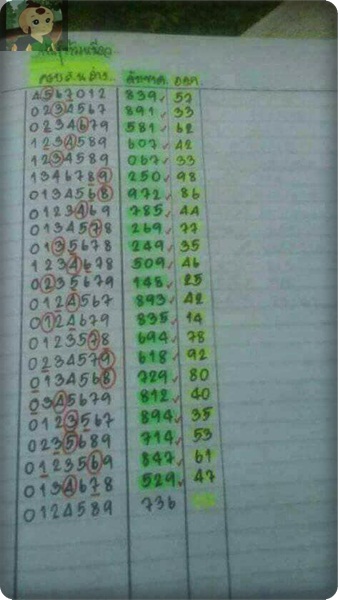 4567012 839 57
0234567 891 33
0234679 581 62
1234589 607 42
1234589 067 33
1346789 250 98
0134568 972 86
0123469 785 44
0134578 269 77
0135678 249 35
1234678 509 46
0235679 148 25
0124567 893 42
0124679 835 14
0123578 694 78
0234579 618 92
0134568 729 80
0345679 812 40
0123567 894 35
0235689 714 53
0123569 847 61
0134678 529 47
0124589 736